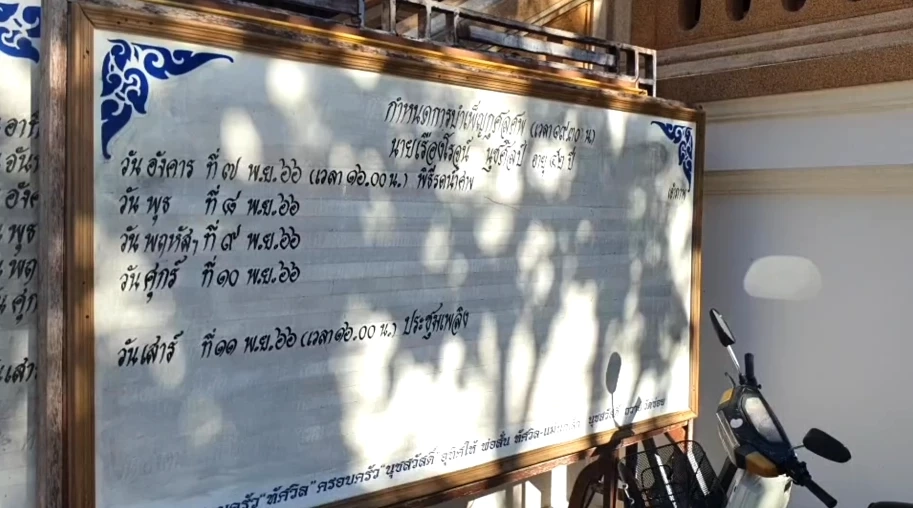 กำหนดการบำเพ็ญกุศลศพ (เวลา๑๙.๓๐ น)
นายเรืองโรจน์ นุชศิลป์ อายุ ๕๒ ปี
เจ้าภาพ
วันอังคาร ที่ ๗ พ.ย.๖๖ (เวลา ๑๖.00 น.) พิธีรดน้ำศพ
วันพุธ ที่ ๘ พ.ย.๖๖
วันพฤหัสฯ ที่ ๙ พ.ย.๖๖
วันศุกร์ ที่ ๑๐ พ.ย.๖๖
วันเสาร์ ที่ ๑๑ พ.ย.๖๖ (เวลา๑๖.00 น.) ประชุมเพลิง
"ทัศวิล" ครอบครัว "นุชสวัสดิ์" อุทิศให้ พ่อสั่น ทัศวิล